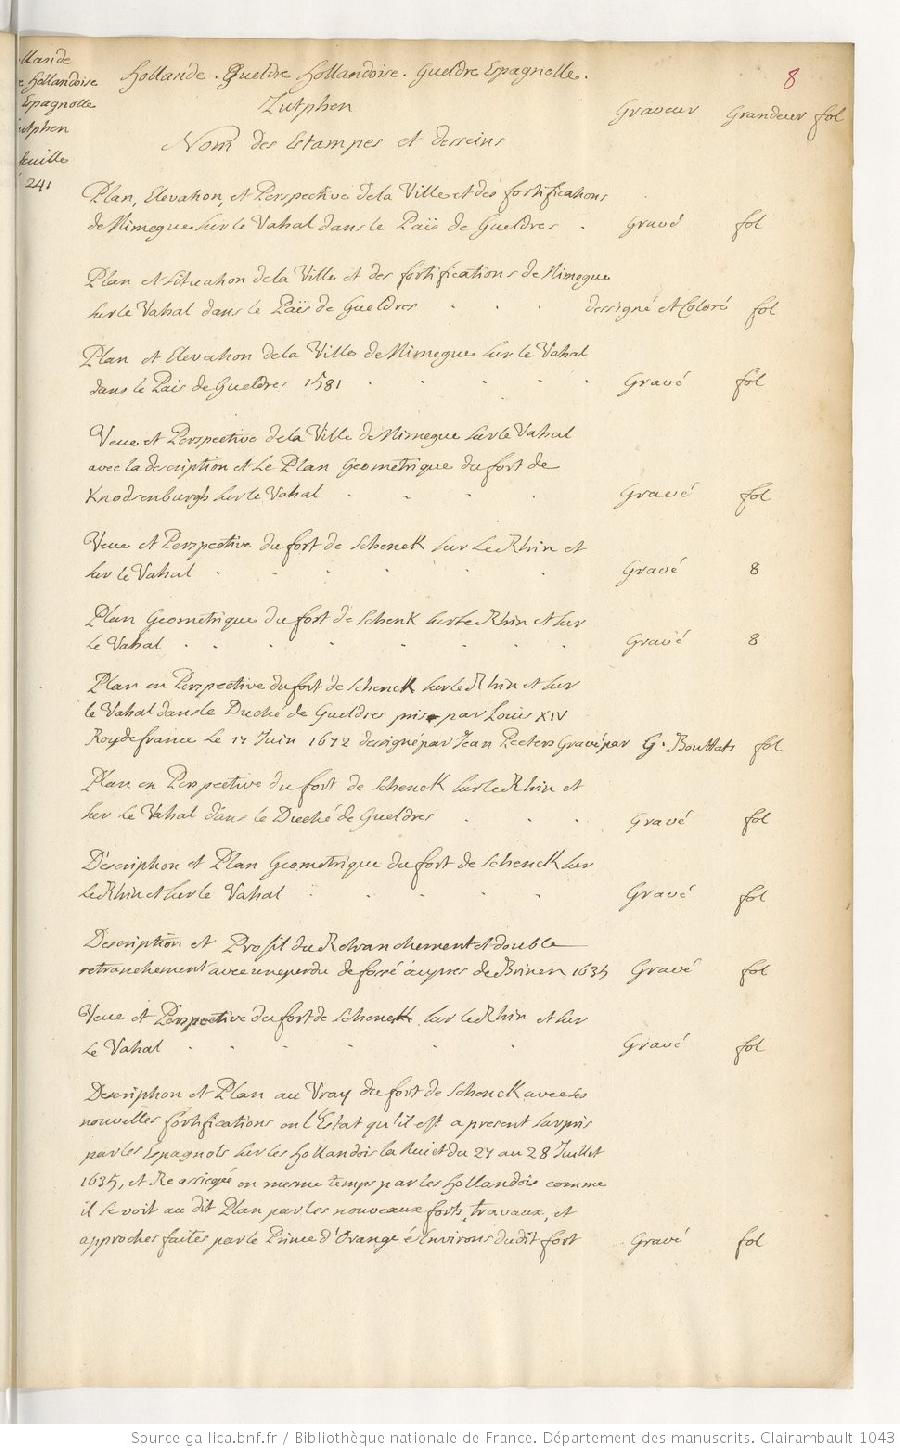 llande
e Hollandoise
Epagnolle
utphen
feuille
241
8
Hollande. Gueldre Hollandoise. Gueldre Epagnolle.
Zutphen
Graveur Grandeur fol
Nom des Estampes et desseins
Plan, Elevation, et Perspective de la Ville et des fortifications
de Nimegue sur le Vahal dans le Païs de Gueldres . Gravé fol
Plan et situation de la Ville et des fortifications de Nimegue
sur le Vahal dans le Païs de Gueldres . . . dessigné et Coloré fol
Plan et Elevation de la Ville de Nimegue sur le Vahal
dans le Païs de Gueldres 1581 . . . . . Gravé fol
Veue et Perspective de la Ville de Nimegue sur le Vahal
avec la description et le Plan Geometrique du fort de
Knodsenburgh sur le Vahal . . . . Gravé fol
Veue et Perspective du fort de Schenck sur Le Rhin et
sur le Vahal . . . . . . Gravé 8
Plan Geometrique du fort de Schenk sur le Rhin et sur
le Vahal . . . . . . . Gravé 8
Plan en Perspective du fort de Schenck sur le Rhin et sur
le Vahal dans le Duché de Gueldres pris par Louis XIV
Roy de france Le 17 Juin 1672 dessigné par Jean Peeters Gravé par G. Bouttats fol
Plan en Perspective du fort de Schenck sur le Rhin et
sur le Vahal dans le Duché de Gueldres . . . Gravé fol
Description et Plan Geometrique du fort de Schenck sur
Le Rhin et sur le Vahal . . . . . Gravé fol
Description et Profil du Retranchement et double
retranchement avec une perdu de fossé aupres de Brinen 1635 Gravé fol
Veue et Perspective du fort de Schenck sur le Rhin et sur
Le Vahal . . . . . . Gravé fol
Description et Plan au Vray du fort de Schenck avec les
nouvelles fortifications en l'Estat qu'il est a present surpris
par les Espagnols sur les Hollandois la Nuict du 27 au 28 Juillet
1635, et Reassiegée en mesme temps par les Hollandois comme
il se voit au dit Plan par les nouveaux forts, travaux, et
approches faites par le Prince d'Orange és Environs dudit fort Gravé fol
Source gallica.bnf.fr / Bibliothèque nationale de France. Département des manuscrits. Clairambault 1043